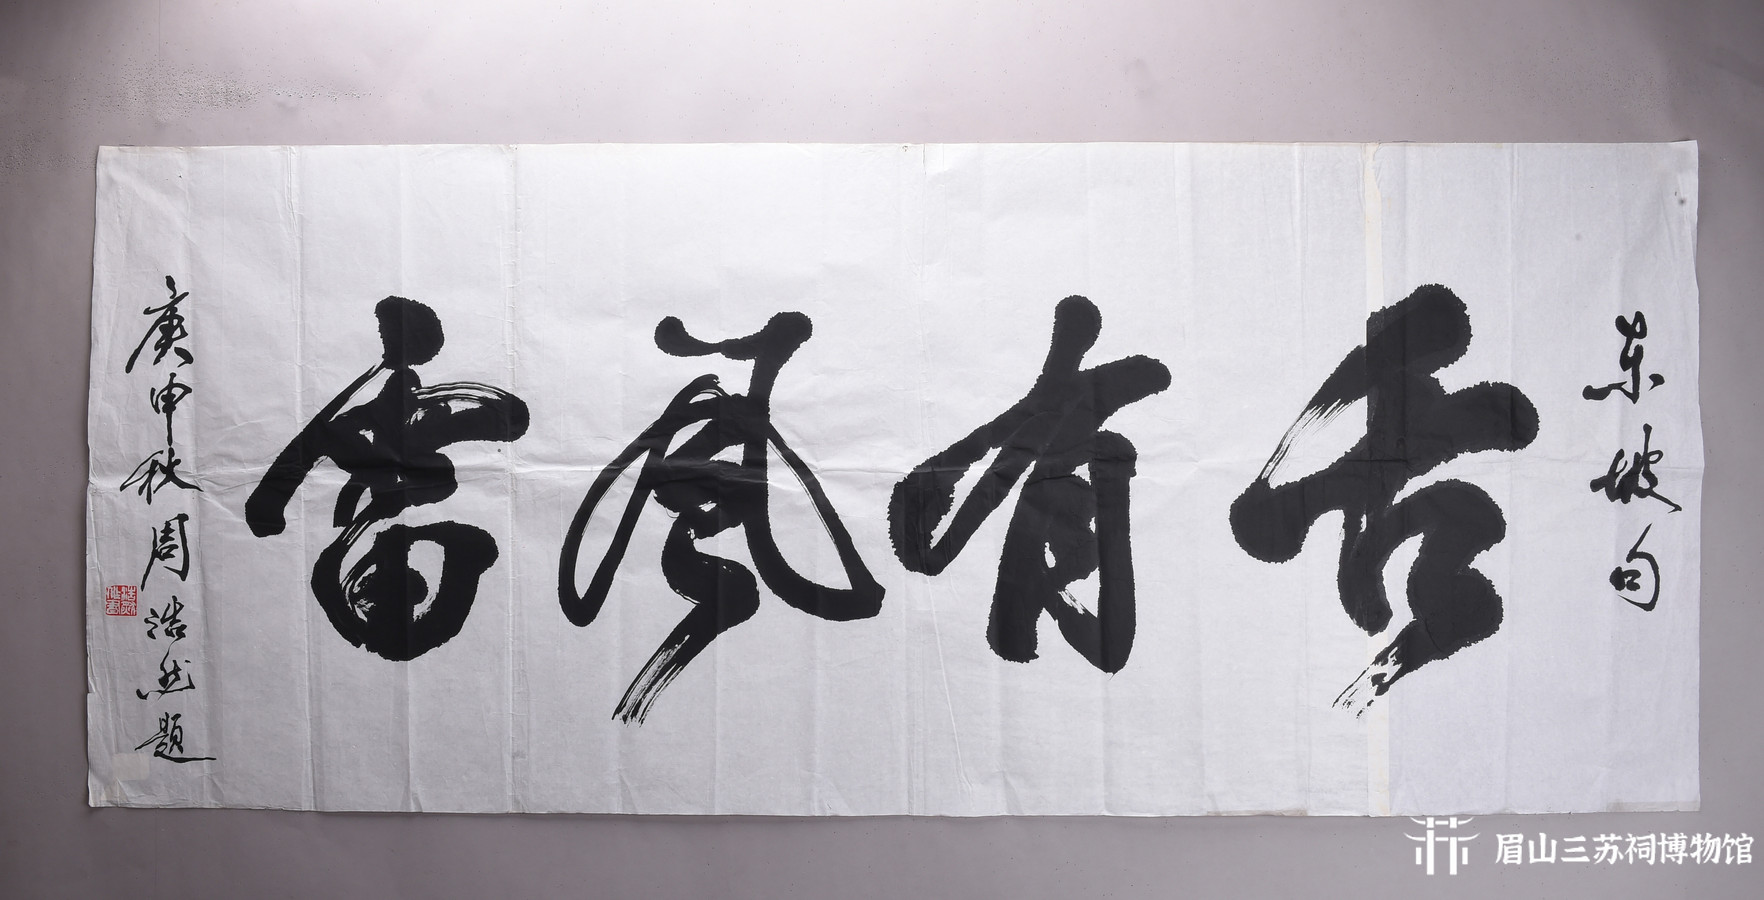 东坡句
舌有风雷
庚申秋周浩然题
眉山三苏祠博物馆